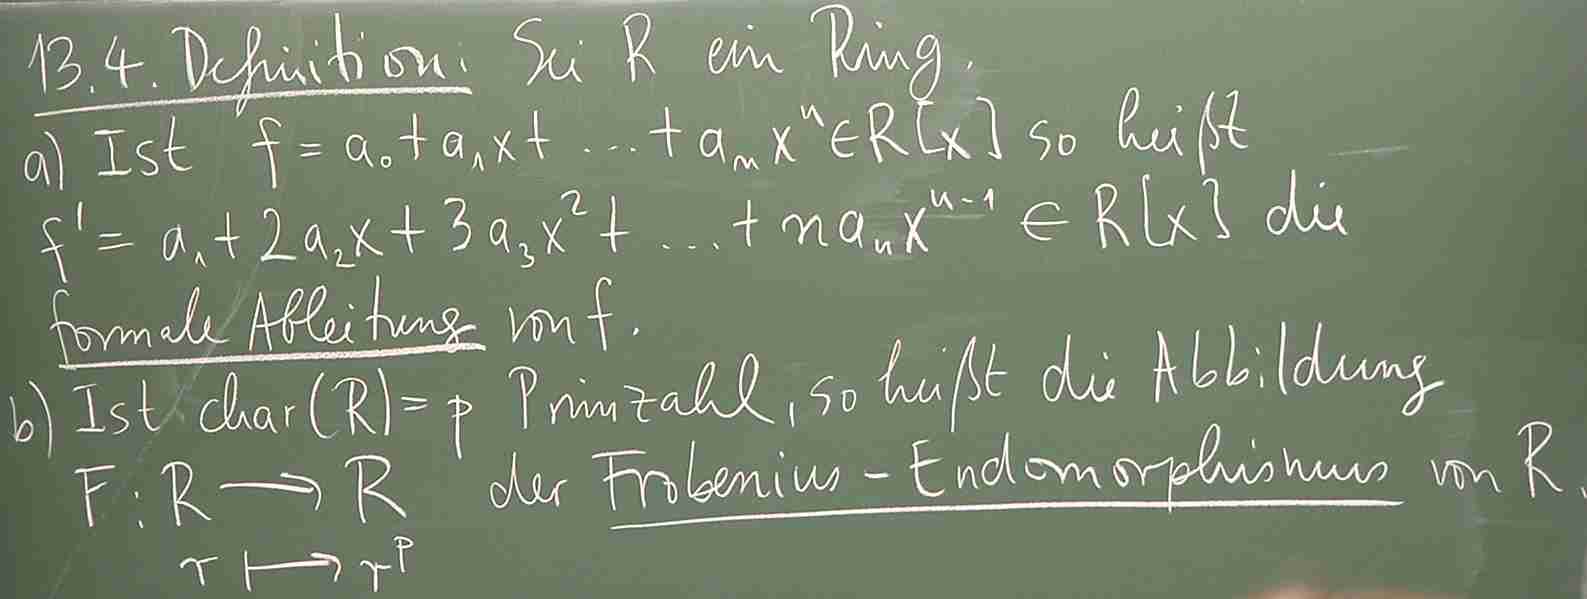 13.4. Definition: Sei R ein Ring.
a) Ist f = a₀ + a₁x + ... + aₙxⁿ ∈ R[x] so heißt
f' = a₁ + 2a₂x + 3a₃x² + ... + naₙxⁿ⁻¹ ∈ R[x] die
formale Ableitung von f.
b) Ist char(R) = p Primzahl, so heißt die Abbildung
F: R ⟶ R der Frobenius-Endomorphismus von R.
r ⟼ rᵖ